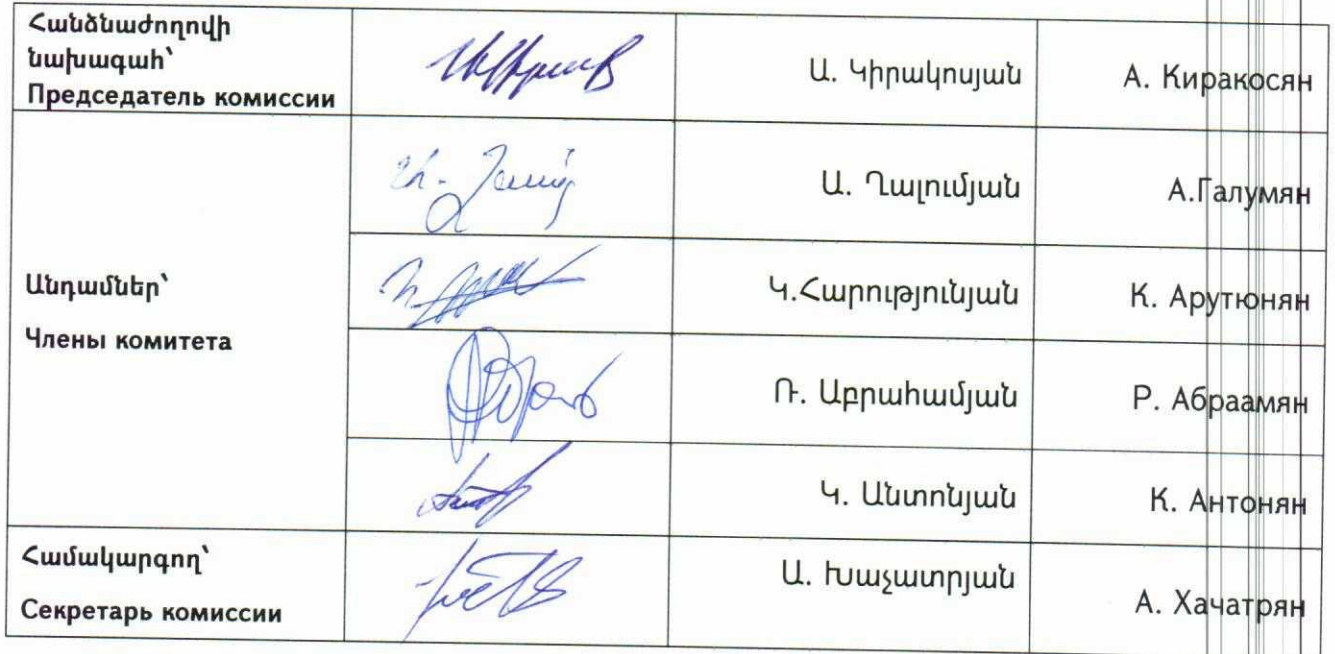 Հանձնաժողովի
նախագահ՝
Председатель комиссии
Ա. Կիրակոսյան
А. Киракосян
Ա. Ղալումյան
А.Галумян
Անդամներ՝
Члены комитета
Կ.Հարությունյան
К. Арутюнян
Ռ. Աբրահամյան
Р. Абраамян
Կ. Անտոնյան
К. Антонян
Համակարգող՝
Секретарь комиссии
Ա. Խաչատրյան
А. Хачатрян